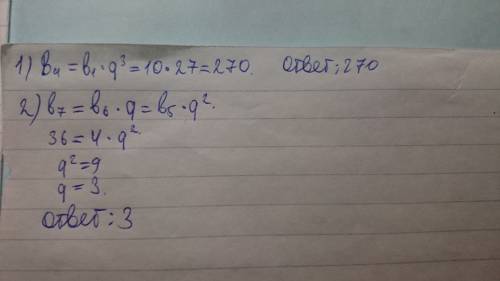 1) в₄ = в₁ · q³ = 10 · 27 = 270. Ответ: 270
2) в₇ = в₆ · q = в₅ · q².
36 = 4 · q².
q² = 9
q = 3.
Ответ: 3